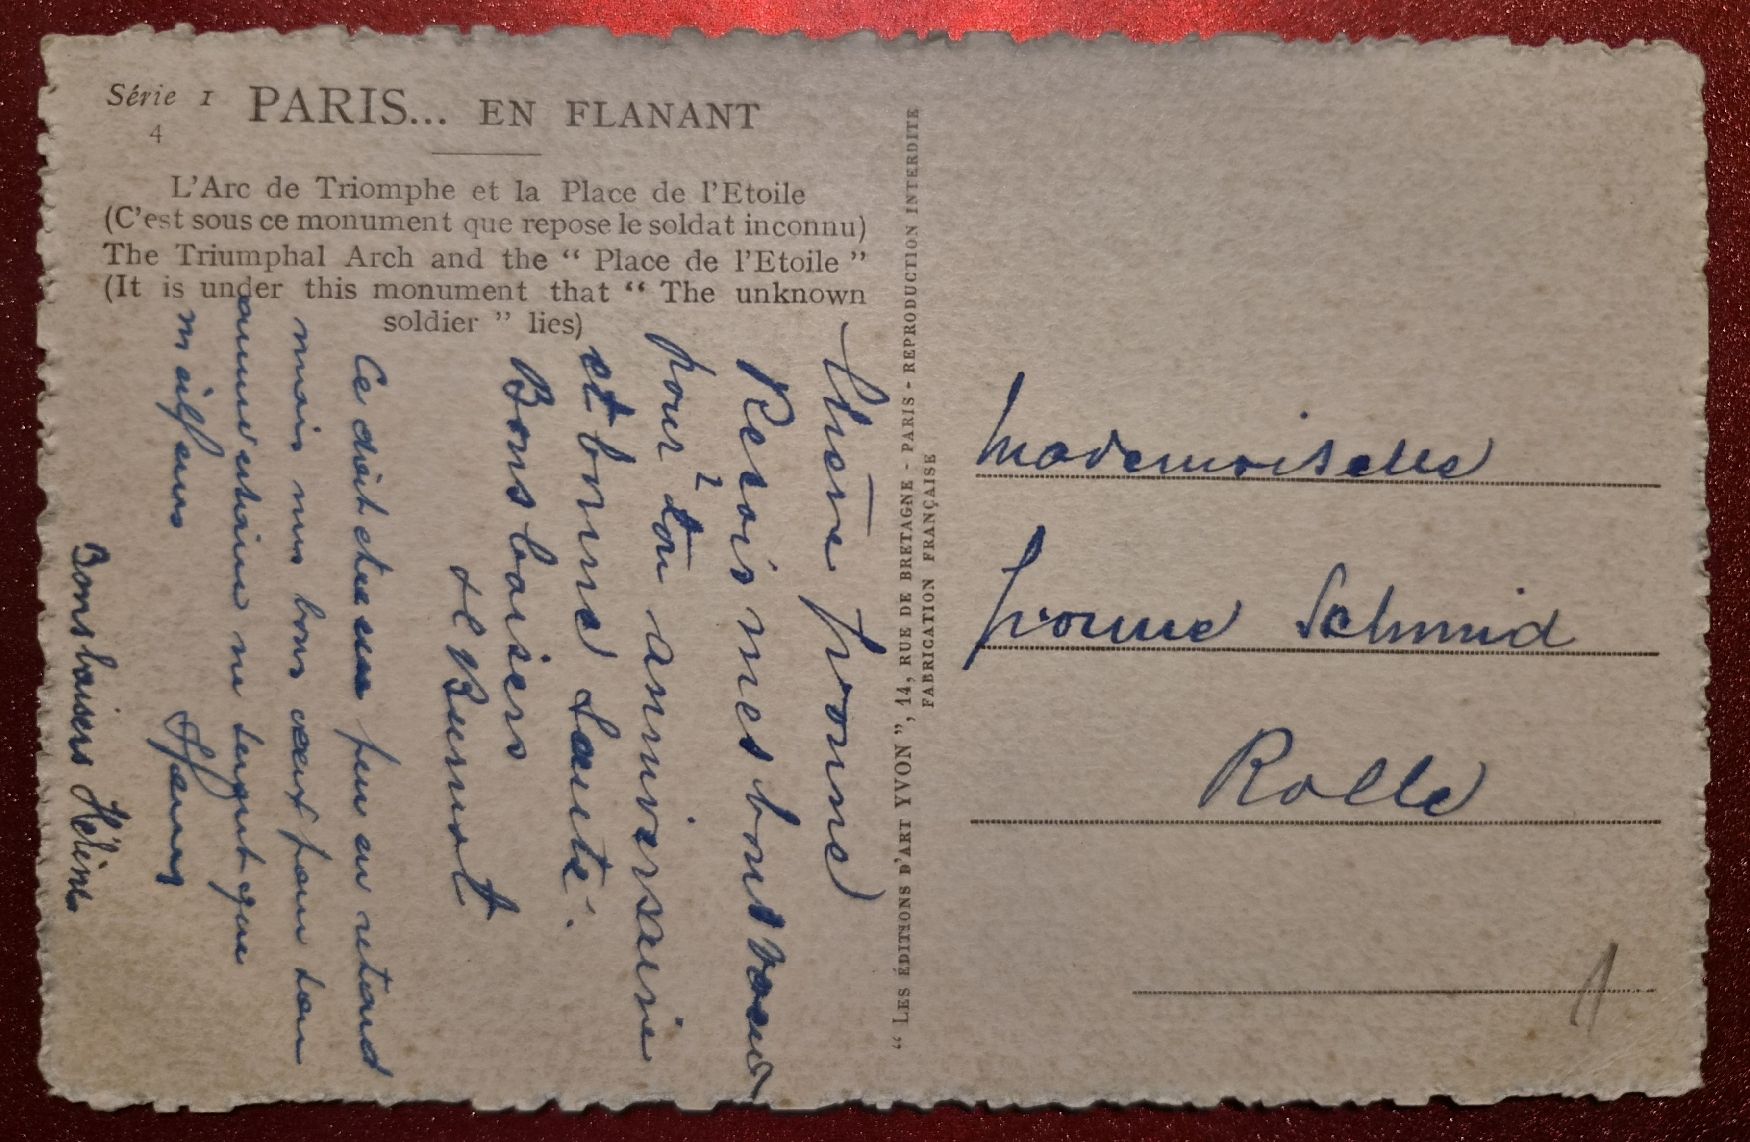 Série 1
4
PARIS... EN FLANANT
L'Arc de Triomphe et la Place de l'Etoile
(C'est sous ce monument que repose le soldat inconnu)
The Triumphal Arch and the “ Place de l'Etoile ”
(It is under this monument that “ The unknown
soldier ” lies)
Chère Yvonne
Reçois mes bons voeux
pour ton anniversaire
et bonne Santé.
Bons baisers
Ce doit etre un peu en retard
mais mes bons voeux pour ton
anniversaire ne seront que
meilleurs
Bons baisers Hélène
“ LES ÉDITIONS D'ART YVON ”, 14, RUE DE BRETAGNE - PARIS - REPRODUCTION INTERDITE
FABRICATION FRANÇAISE
Mademoiselle
Yvonne Schmid
Rolle
1